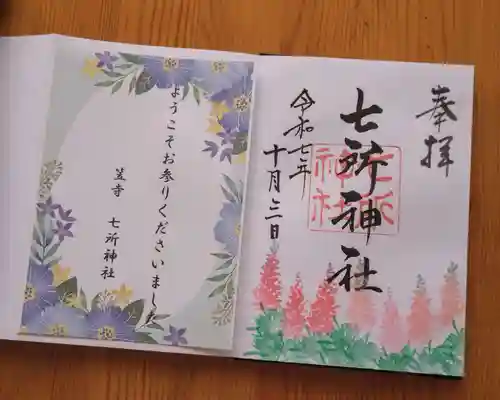 奉拝
七所神社
令和七年
十月三日
七所
神社
ようこそお参りくださいました
笠寺 七所神社